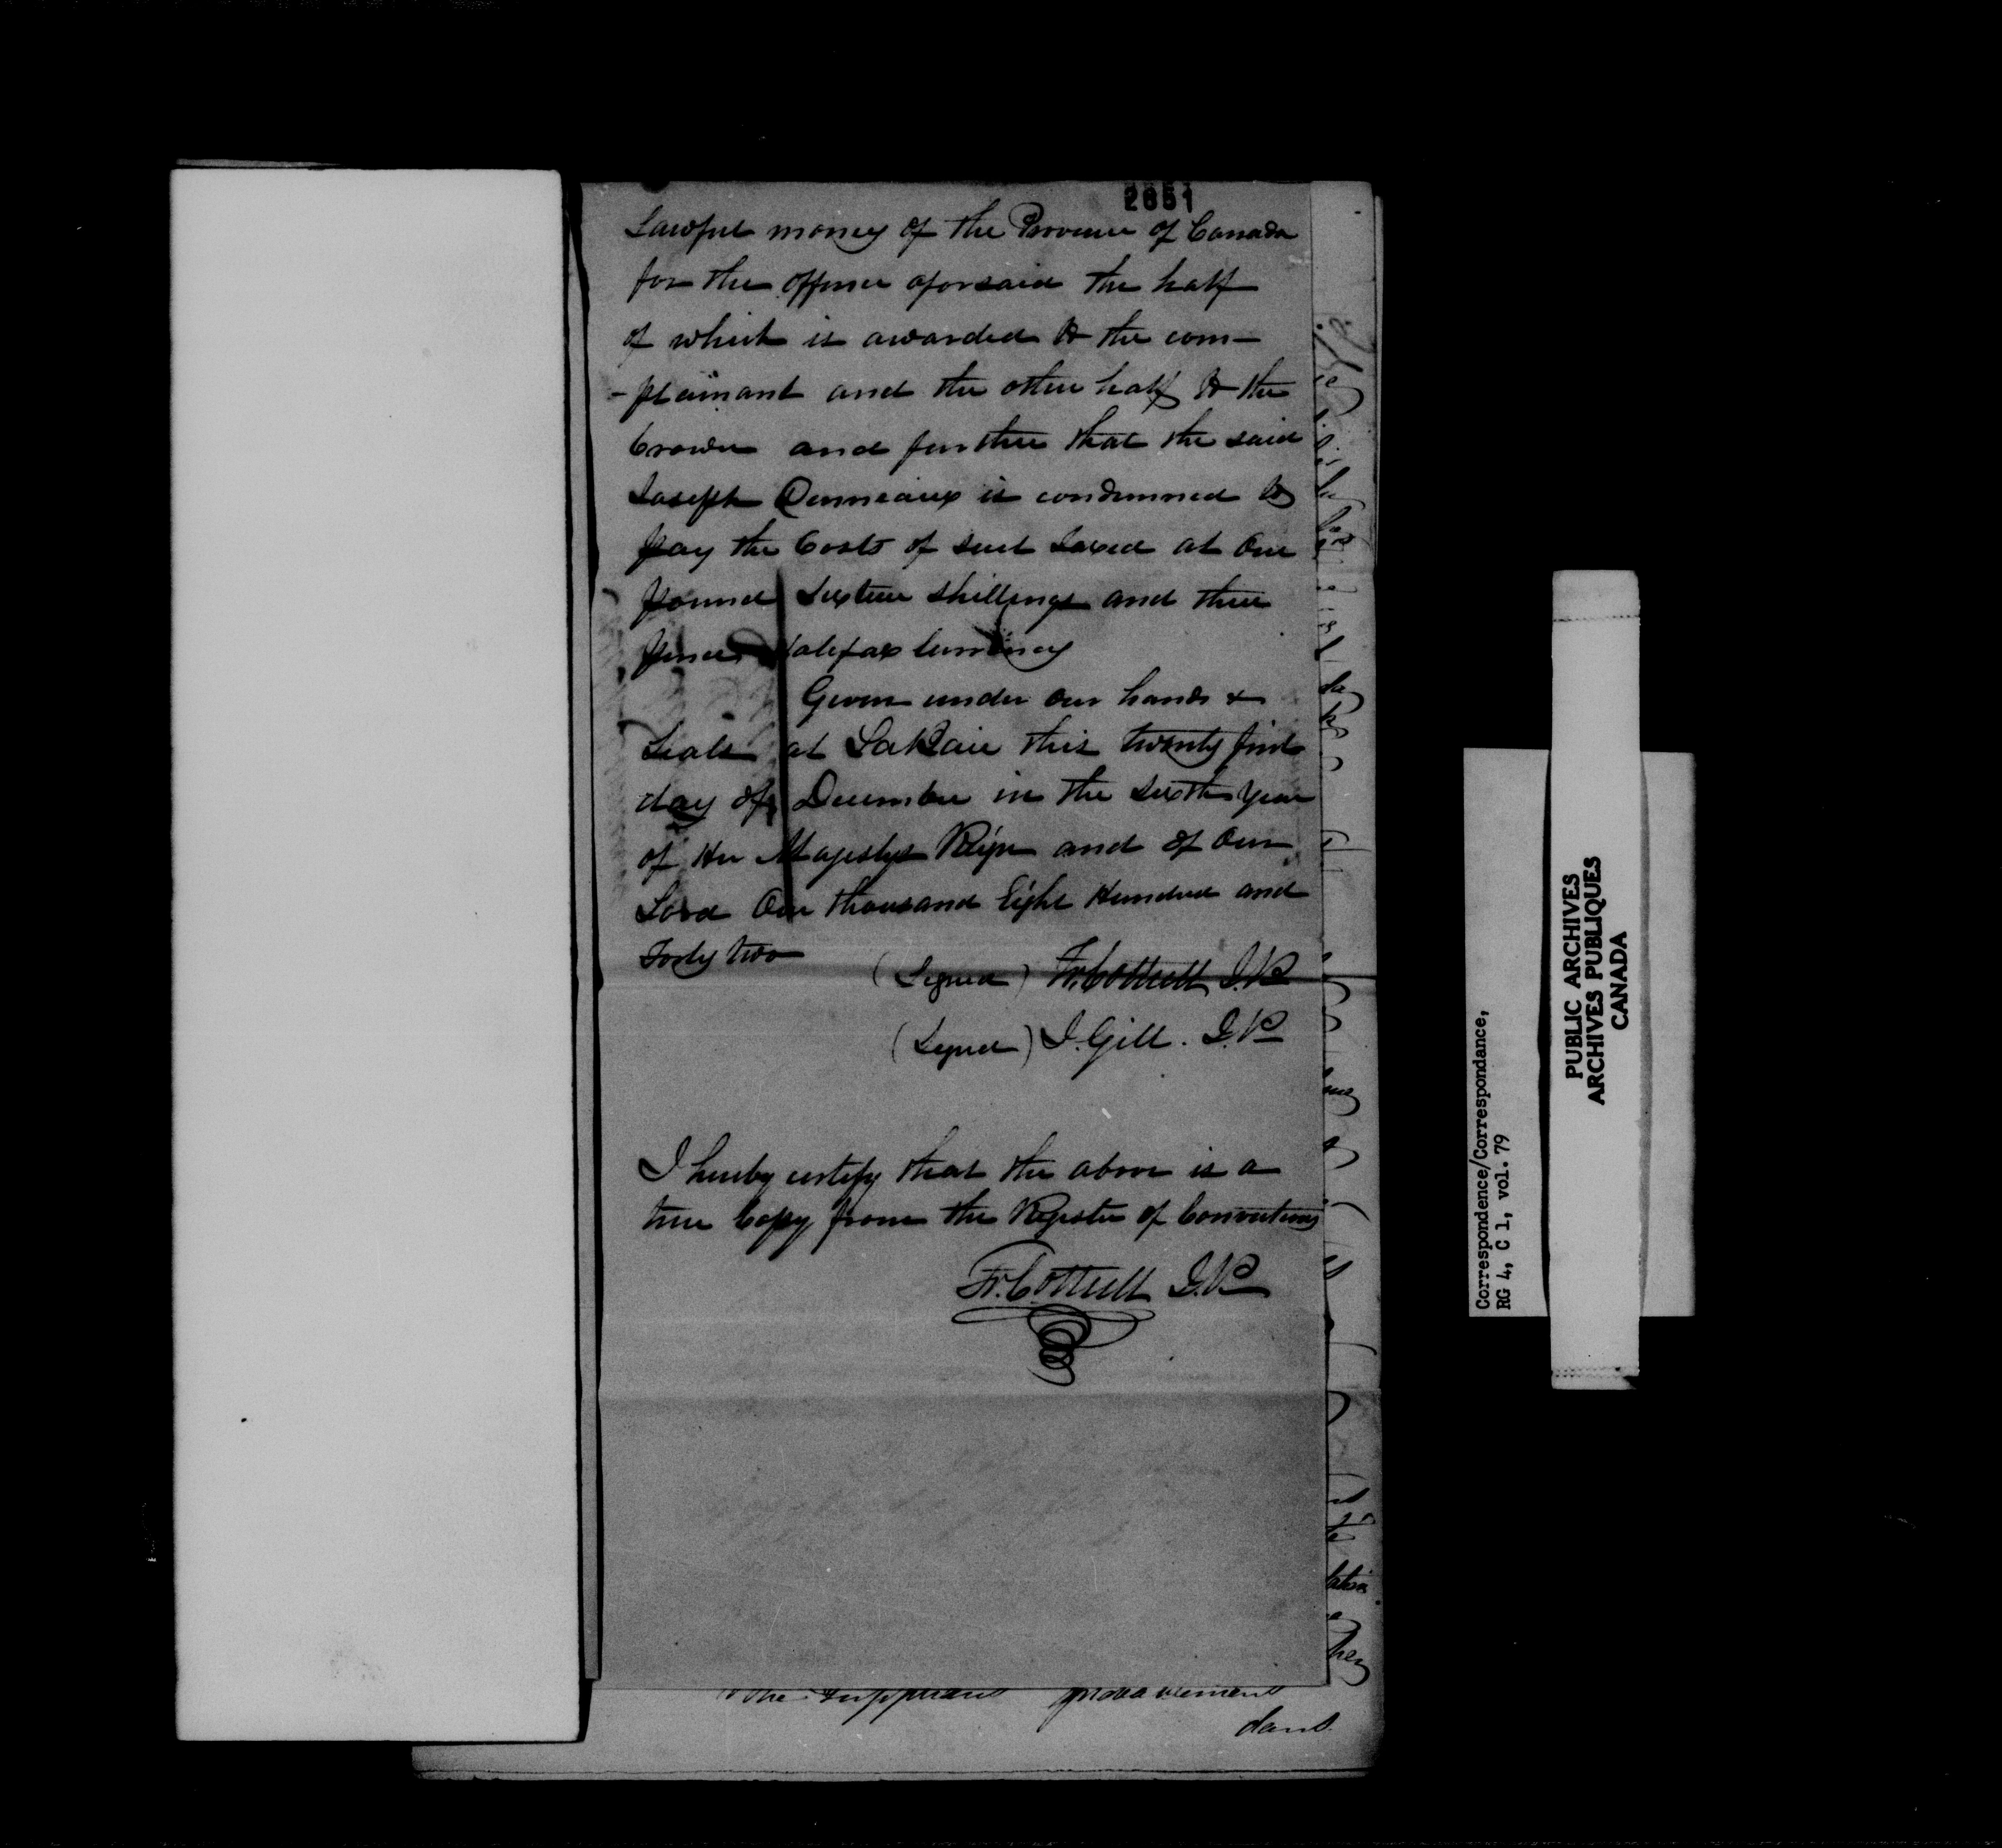 2651
Lawful money of the Province of Canada
for the offence aforsaid the half
of which is awarded to the com-
-plainant and the other half to the
Crown and further that the said
Joseph is condemned to
pay the Costs of suit taxed at One
pound Sixteen shillings and three
pence Halifax Currency
Given under our hands &
Seals at LaBaie this twenty first
day of December in the sixth year
of Her Majestys Reign and of Our
Lord One thousand Eight Hundred and
Forty two
(Signed) Fr. Cottrell J.P
(Signed) I. Gill. J.P
I hereby certify that the above is a
true Copy from the Register of Convictions
Fr. Cottrell J.P
dans
Correspondence/Correspondance,
RG 4, C 1, vol. 79
PUBLIC ARCHIVES
ARCHIVES PUBLIQUES
CANADA